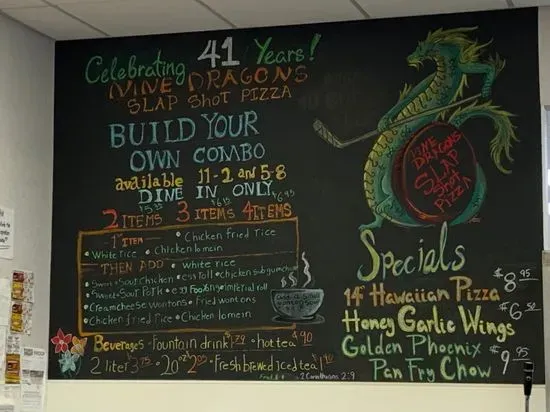 Celebrating 41 Years!
NINE DRAGONS
SLAP SHOT PIZZA
BUILD YOUR
OWN COMBO
available 11-2 and 5-8
DINE IN ONLY
$5.35 $6.15 $6.95
2 ITEMS 3 ITEMS 4 ITEMS
1st ITEM • Chicken fried rice
• White rice • Chicken lomein
THEN ADD • White rice
• Sweet + Sour Chicken • egg roll • chicken subgum chow
• Sweet + Sour Pork • egg Foo Young • imperial roll
• Creamcheese wontons • fried wontons
• Chicken fried rice • Chicken lomein
add a small
Beverages • Fountain drink $1.29 • hot tea $.90
2 liter 3.75 • 20oz 2.05 • Fresh brewed iced tea $1.40
2 Corinthians 2:9
NINE DRAGONS
SLAP
SHOT
PIZZA
Specials
14" Hawaiian Pizza $8.95
Honey Garlic Wings $6.50
Golden Phoenix
Pan Fry Chow $9.95